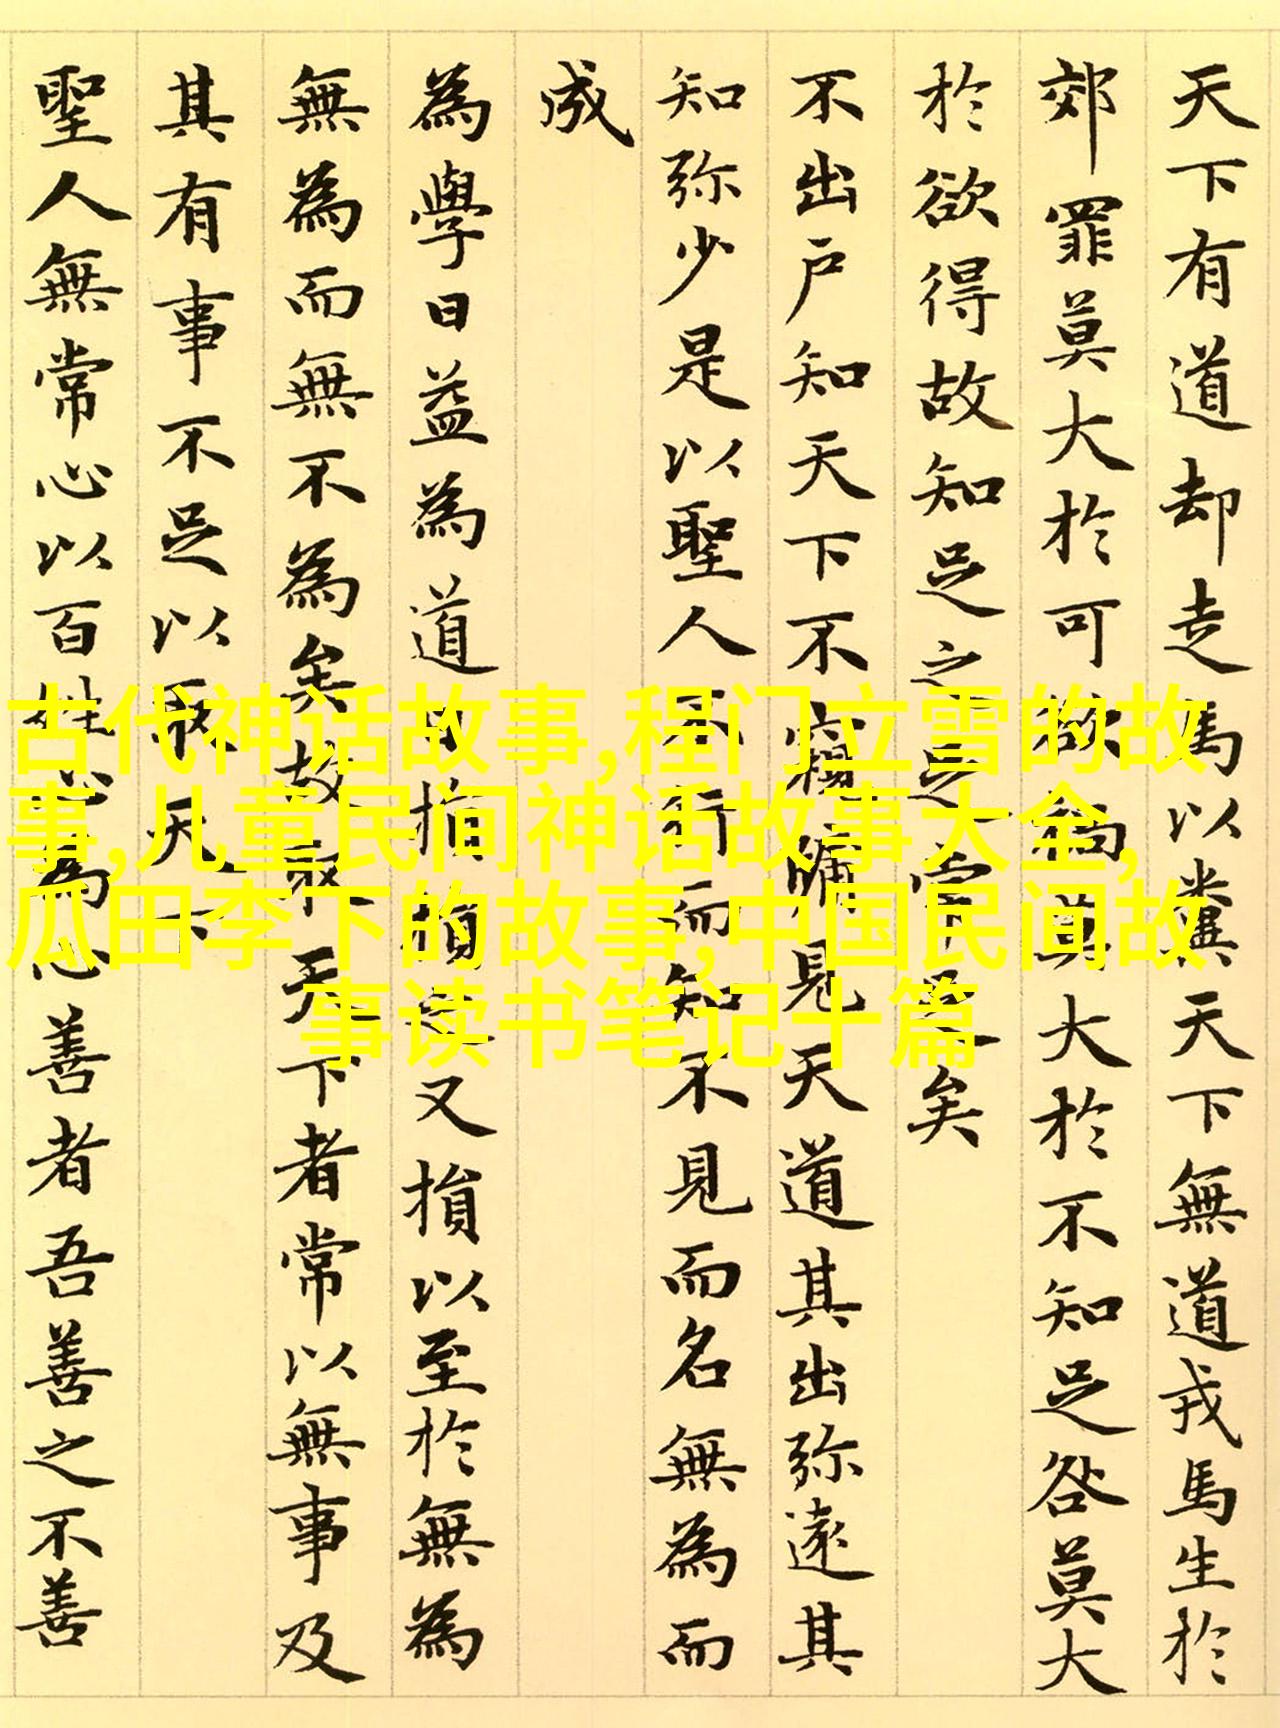 天下有道却走馬以糞天下無道戎馬生於
郊罪莫大於可欲禍莫大於不知足咎莫大
於欲得故知足之足常足矣
不出户知天下不窺牖見天道其出弥遠其
知弥少是以聖人不行而知不見而名無為而
成
為學日益為道日損損之又損以至於無為
無為而無不為矣故取天下者常以無事及
其有事不足以取天下
聖人無常心以百姓心為心善者吾善之不善
古代神话故事,程门立雪的故
事,儿童民间神话故事大全,
瓜田李下的故事,中国民间故
事读书笔记十篇